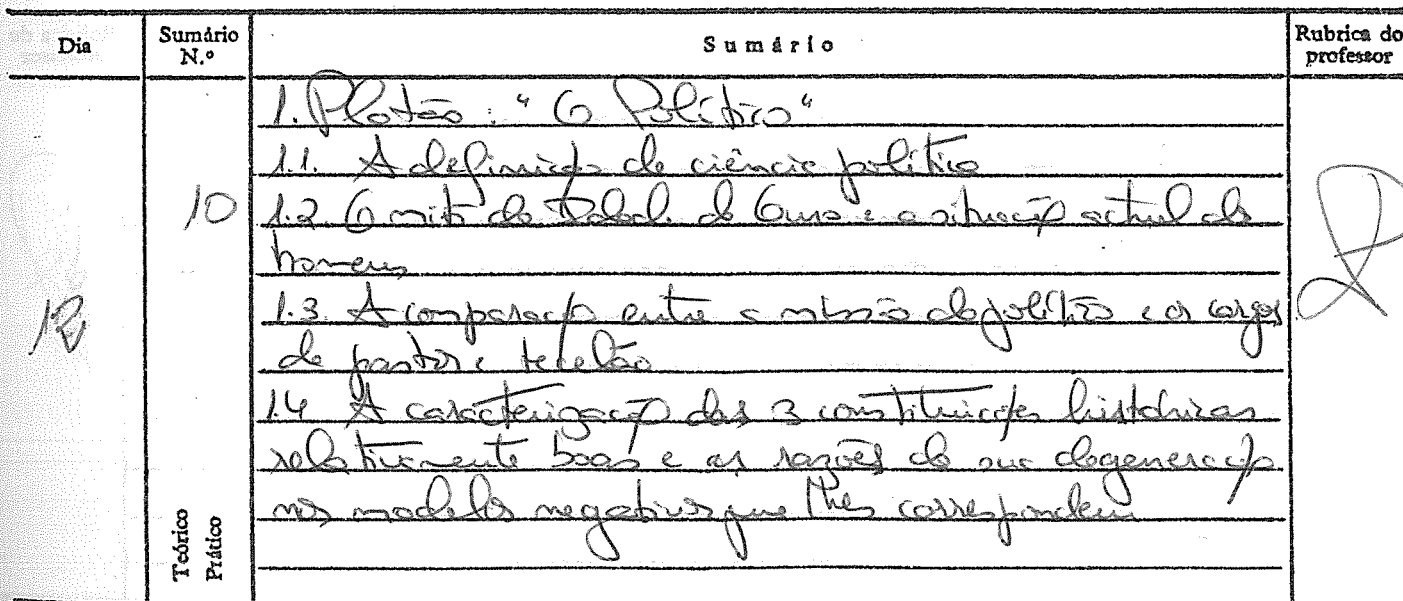 Dia
Sumário N.º
Sumário
Rubrica do professor
1. Platão: "O Político"
1.1. A definição de ciência política
10
1.2. O mito da Idade de Ouro e a situação actual dos
homens
12
1.3. A comparação entre a missão do político e os cargos
de pastor e tecelão
1.4 A caracterização das 3 constituições históricas
relativamente boas e as razões da sua degeneração
nos modelos negativos que lhes correspondem
Teórico
Prático